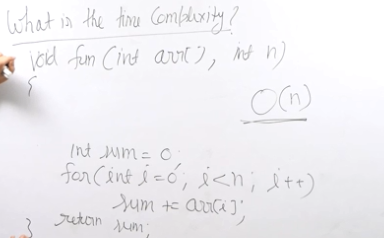 What is the time Complexity?
void fun (int arr[], int n)
{
O(n)
int sum = 0;
for(int i=0; i<n; i++)
sum += arr[i];
} return sum;